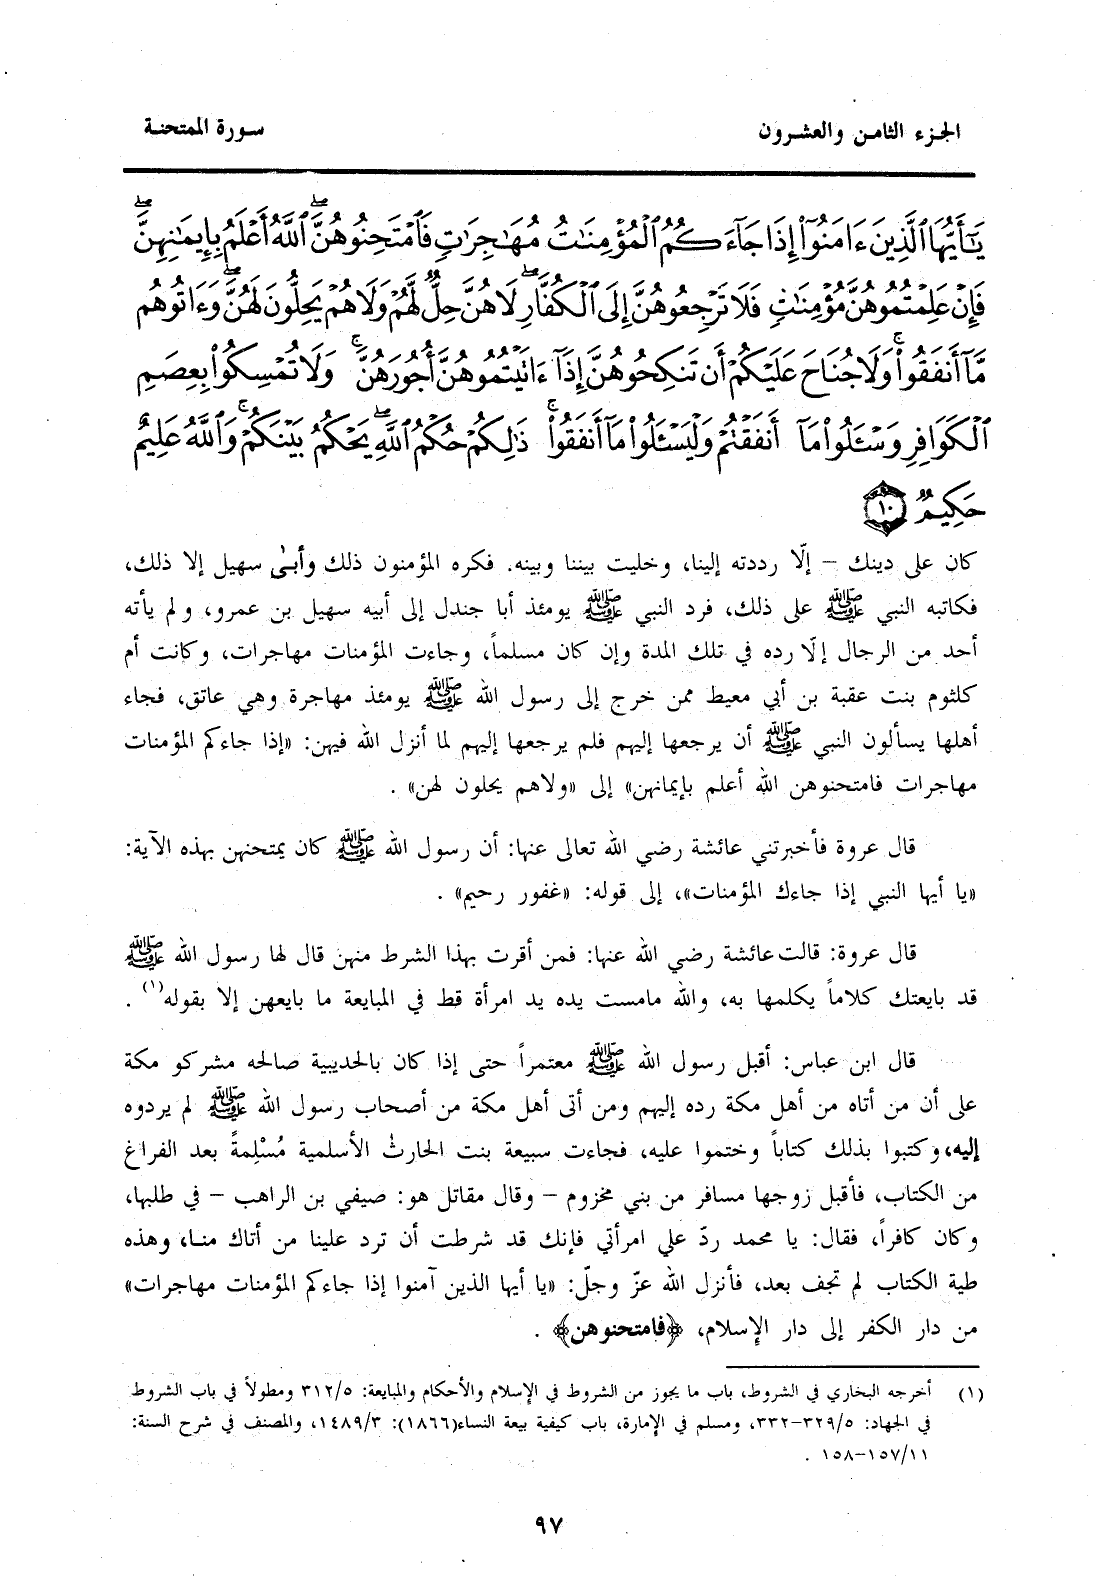 الجزء الثامن والعشرون
سورة الممتحنة
يَٰٓأَيُّهَا ٱلَّذِينَ ءَامَنُوٓا۟ إِذَا جَآءَكُمُ ٱلْمُؤْمِنَٰتُ مُهَٰجِرَٰتٍ فَٱمْتَحِنُوهُنَّ ۖ ٱللَّهُ أَعْلَمُ بِإِيمَٰنِهِنَّ ۖ
فَإِنْ عَلِمْتُمُوهُنَّ مُؤْمِنَٰتٍ فَلَا تَرْجِعُوهُنَّ إِلَى ٱلْكُفَّارِ ۖ لَا هُنَّ حِلٌّ لَّهُمْ وَلَا هُمْ يَحِلُّونَ لَهُنَّ ۖ وَءَاتُوهُم
مَّآ أَنفَقُوا۟ ۚ وَلَا جُنَاحَ عَلَيْكُمْ أَن تَنكِحُوهُنَّ إِذَآ ءَاتَيْتُمُوهُنَّ أُجُورَهُنَّ ۚ وَلَا تُمْسِكُوا۟ بِعِصَمِ
ٱلْكَوَافِرِ وَسْـَٔلُوا۟ مَآ أَنفَقْتُمْ وَلْيَسْـَٔلُوا۟ مَآ أَنفَقُوا۟ ۚ ذَٰلِكُمْ حُكْمُ ٱللَّهِ ۖ يَحْكُمُ بَيْنَكُمْ ۚ وَٱللَّهُ عَلِيمٌ
حَكِيمٌ ١٠
كان على دينك – إلّا رددته إلينا، وخليت بيننا وبينه. فكره المؤمنون ذلك وأبىٰ سهيل إلا ذلك،
فكاتبه النبي ﷺ على ذلك، فرد النبي ﷺ يومئذ أبا جندل إلى أبيه سهيل بن عمرو، ولم يأته
أحد من الرجال إلّا رده في تلك المدة وإن كان مسلماً، وجاءت المؤمنات مهاجرات، وكانت أم
كلثوم بنت عقبة بن أبي معيط ممن خرج إلى رسول الله ﷺ يومئذ مهاجرة وهي عاتق، فجاء
أهلها يسألون النبي ﷺ أن يرجعها إليهم فلم يرجعها إليهم لما أنزل الله فيهن: «إذا جاءكم المؤمنات
مهاجرات فامتحنوهن الله أعلم بإيمانهن» إلى «ولاهم يحلون لهن» .
قال عروة فأخبرتني عائشة رضي الله تعالى عنها: أن رسول الله ﷺ كان يمتحنهن بهذه الآية:
«يا أيها النبي إذا جاءك المؤمنات»، إلى قوله: «غفور رحيم» .
قال عروة: قالت عائشة رضي الله عنها: فمن أقرت بهذا الشرط منهن قال لها رسول الله ﷺ
قد بايعتك كلاماً يكلمها به، والله مامست يده يد امرأة قط في المبايعة ما بايعهن إلا بقوله(١) .
قال ابن عباس: أقبل رسول الله ﷺ معتمراً حتى إذا كان بالحديبية صالحه مشركو مكة
على أن من أتاه من أهل مكة رده إليهم ومن أتى أهل مكة من أصحاب رسول الله ﷺ لم يردوه
إليه، وكتبوا بذلك كتاباً وختموا عليه، فجاءت سبيعة بنت الحارث الأسلمية مُسْلِمةً بعد الفراغ
من الكتاب، فأقبل زوجها مسافر من بني مخزوم – وقال مقاتل هو: صيفي بن الراهب – في طلبها،
وكان كافراً، فقال: يا محمد ردّ علي امرأتي فإنك قد شرطت أن ترد علينا من أتاك منا، وهذه
طية الكتاب لم تجف بعد، فأنزل الله عزّ وجلّ: «يا أيها الذين آمنوا إذا جاءكم المؤمنات مهاجرات»
من دار الكفر إلى دار الإسلام، ﴿فامتحنوهن﴾ .
(١) أخرجه البخاري في الشروط، باب ما يجوز من الشروط في الإسلام والأحكام والمبايعة: ٣١٢/٥ ومطولاً في باب الشروط
في الجهاد: ٣٢٩/٥–٣٣٢، ومسلم في الإمارة، باب كيفية بيعة النساء(١٨٦٦): ١٤٨٩/٣، والمصنف في شرح السنة:
١٥٧/١١–١٥٨ .
٩٧